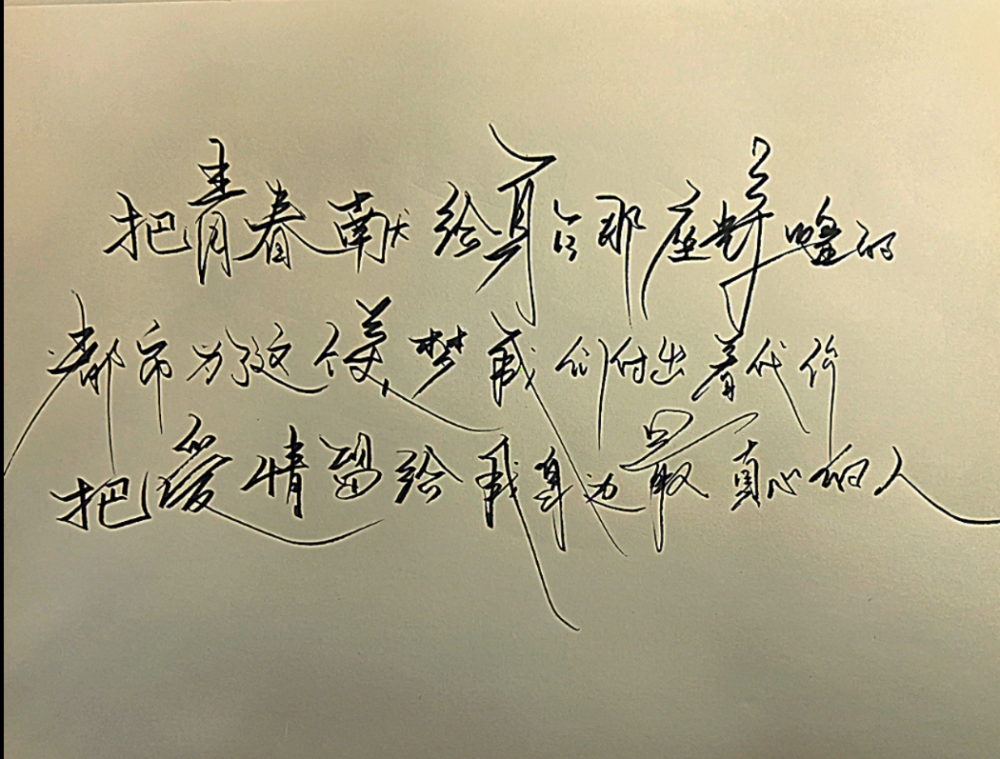 把青春献给身后那座辉煌的
都市为了这个美梦我们付出着代价
把爱情留给我身边最真心的人